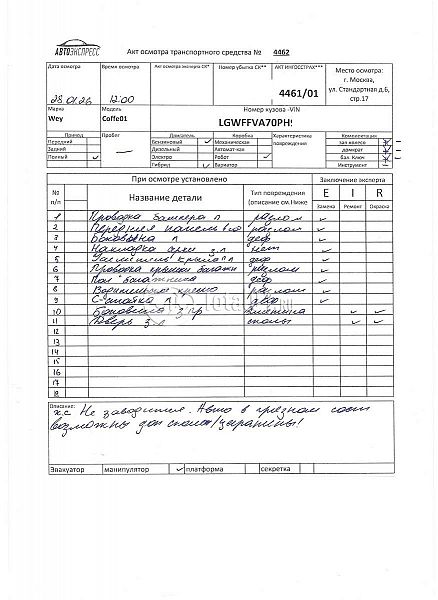 АВТОЭКСПРЕСС
Акт осмотра транспортного средства № 4462
Дата осмотра Время осмотра Акт осмотра эксперта СК* Номер убытка СК** АКТ ИНГОССТРАХ***
Место осмотра:
г. Москва,
ул. Стандартная д.6,
стр.17
28.01.26 12:00 4461/01
Марка Модель Номер кузова -VIN
Wey Coffe01 LGWFFVA70PH
Привод Пробег Двигатель Коробка Характеристика повреждения Комплектация
Передний Бензиновый Механическая зап.колесо
Задний Дизельный Автоматная домкрат
Полный Электро Робот бал. Ключ
Гибрид Вариатор Инструмент
При осмотре установлено Заключение эксперта
№ п/п Название детали Тип повреждения (описание см.Ниже E I R
Замена Ремонт Окраска
1 бампера
2 Передняя панель
3 Боковина л деф
4 Накладка арки з л нет
5 крыла л деф
6 крышки
7 Пол багажника деф
8
9 л деф
10 Боковина з пр вмятина
11 Дверь з л сколы
12
13
14
15
16
17
18
Описание:
х.с Не заводится. Авто в грязном сост
возможны доп сколы/царапины!
Эвакуатор манипулятор платформа секретка